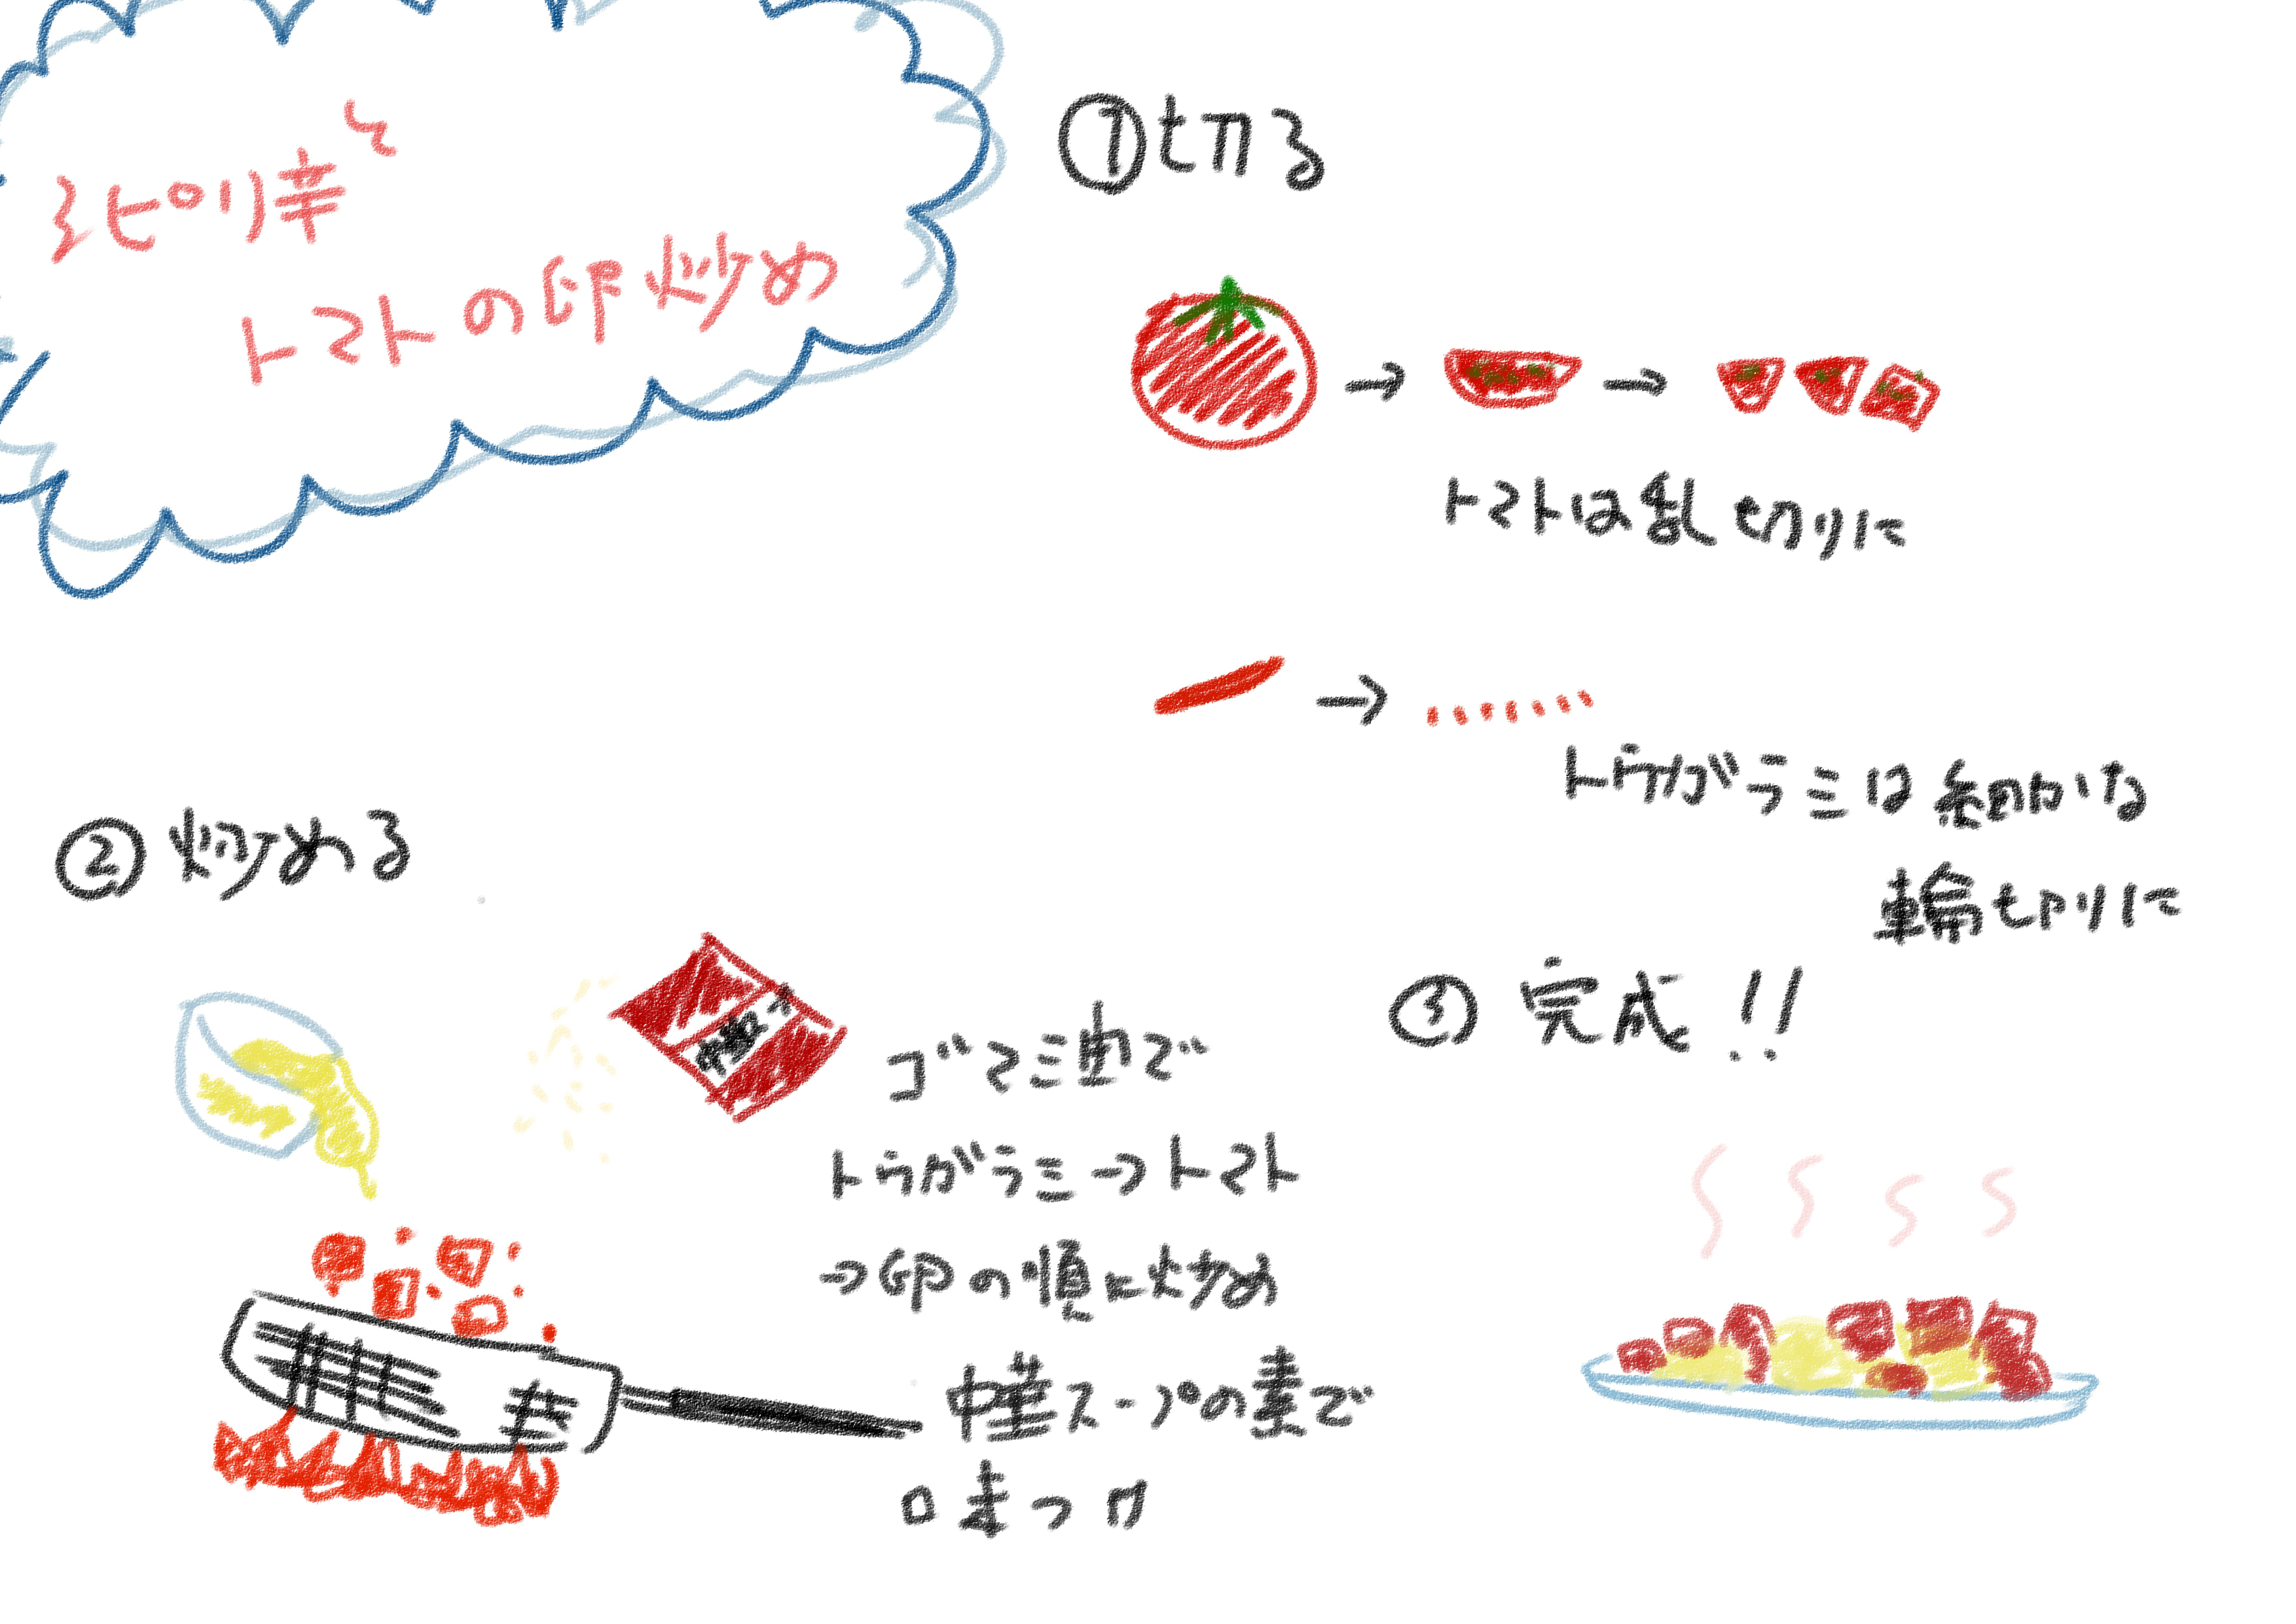 ピリ辛と
トマトの卵炒め
①切る
トマトは乱切りに
トウガラミは細かな
輪切りに
②炒める
中華ス
ゴマミ油で
トウガラミ→トマト
→卵の順に炒め
中華スープの素で
味つけ
③完成!!